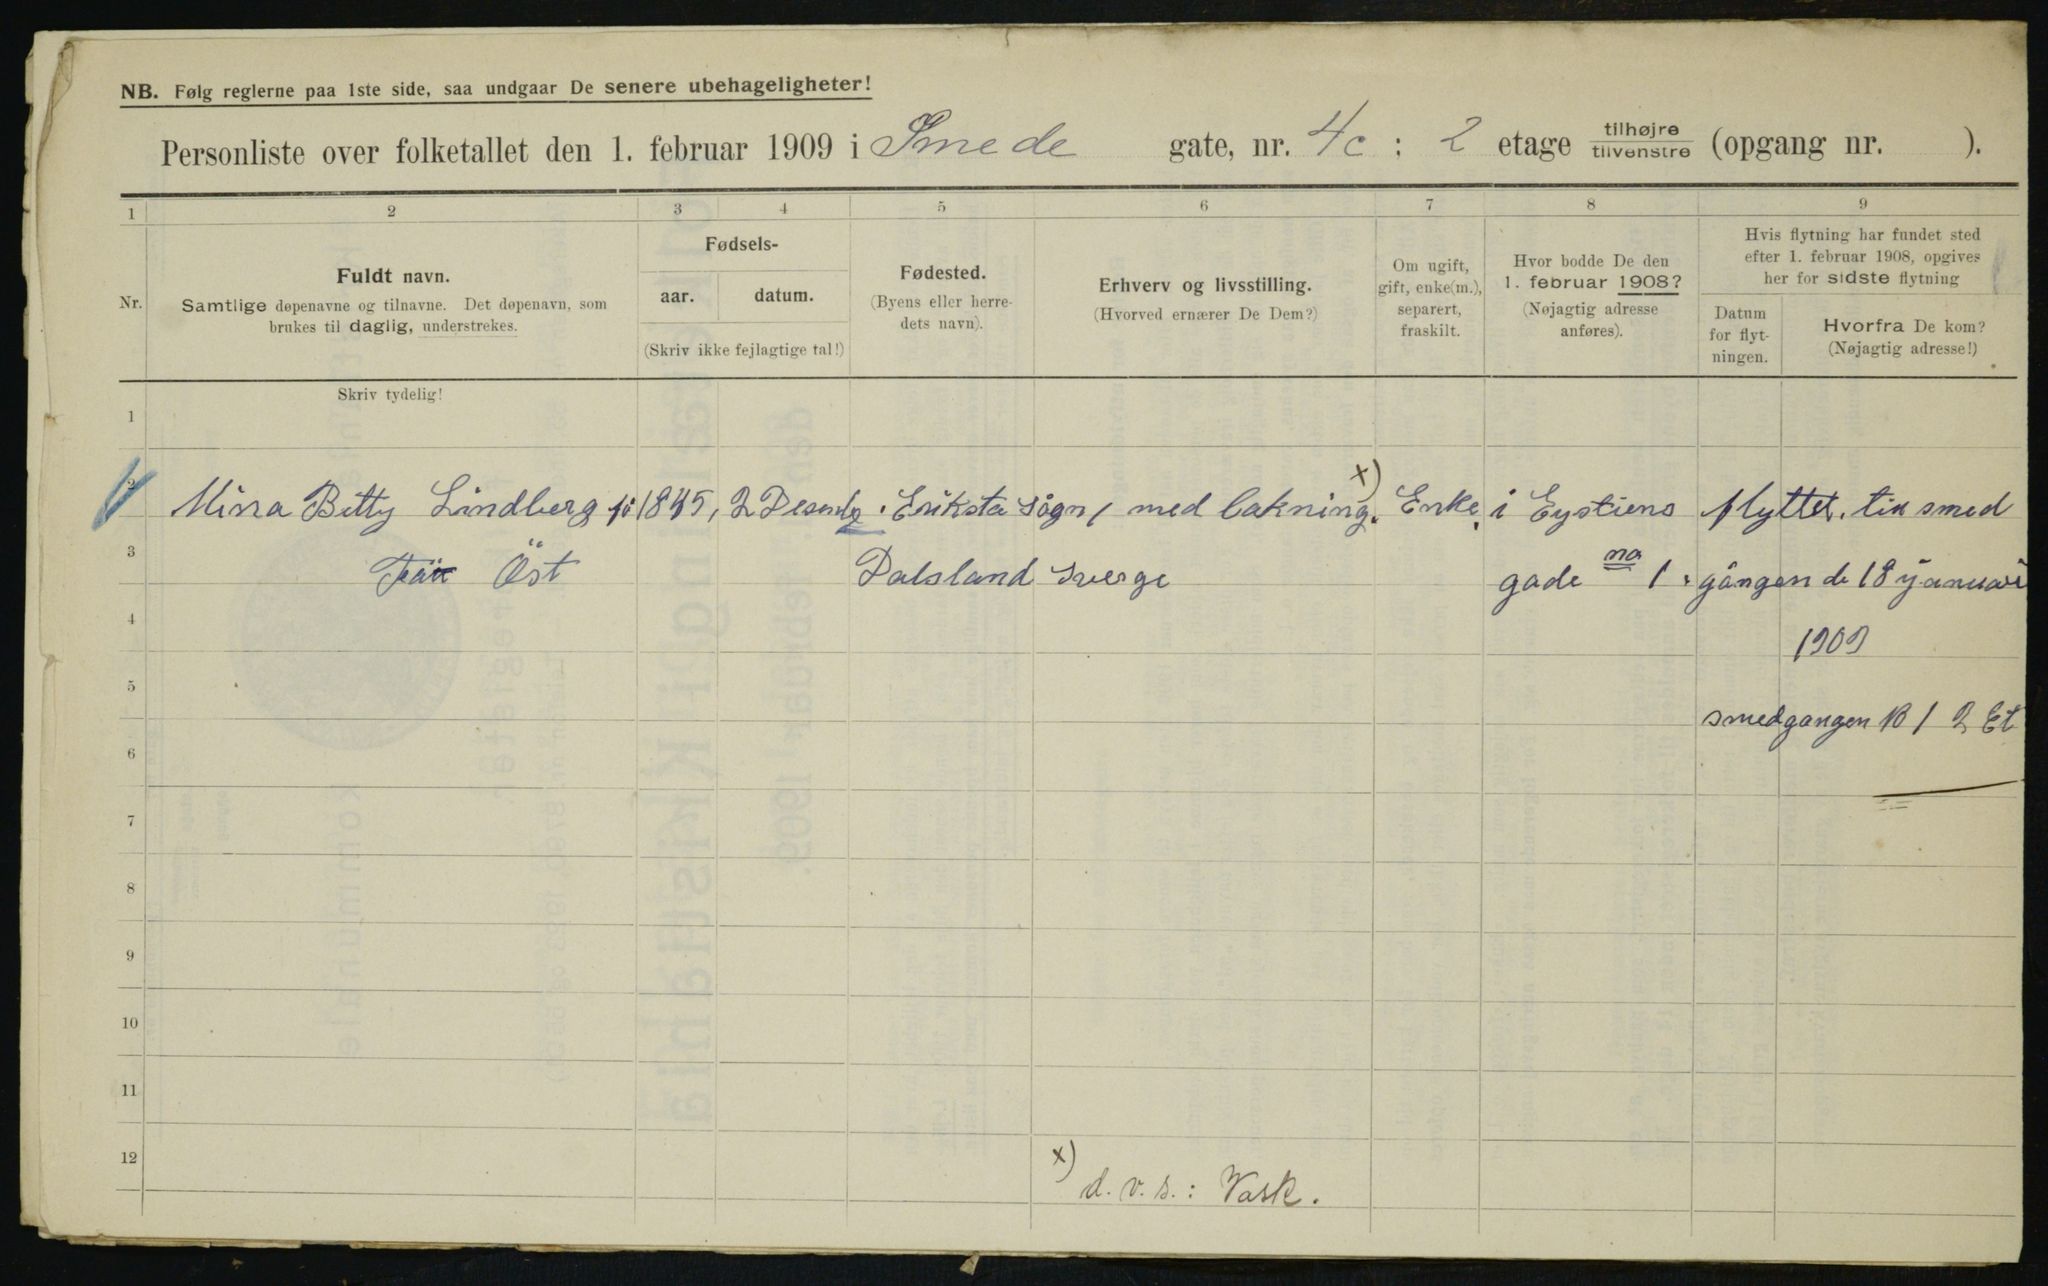 NB. Følg reglerne paa 1ste side, saa undgaar De senere ubehageligheter!
Personliste over folketallet den 1. februar 1909 i Smede gate, nr. 4c : 2 etage tilhøjre tilvenstre (opgang nr. ).
1 2 3 4 5 6 7 8 9
Nr.
Fuldt navn.
Samtlige døpenavne og tilnavne. Det døpenavn, som
brukes til daglig, understrekes.
Fødsels-
aar. datum.
(Skriv ikke fejlagtige tal!)
Fødested.
(Byens eller herre-
dets navn).
Erhverv og livsstilling.
(Hvorved ernærer De Dem?)
Om ugift,
gift, enke(m.),
separert,
fraskilt.
Hvor bodde De den
1. februar 1908?
(Nøjagtig adresse
anføres).
Hvis flytning har fundet sted
efter 1. februar 1908, opgives
her for sidste flytning
Datum
for flyt-
ningen.
Hvorfra De kom?
(Nøjagtig adresse!)
Skriv tydelig!
1
2
x)
Minna Betty Lindberg 1845, 2 Desembr. Eriksta Sogn, med Vakning. Enke. i Eystiens flyttet. til smed
3
Öst Dalsland Sverge gade no 1. gången de 18 januari
4
1909
5
smedgangen 1 2 Et
6
7
8
9
10
11
12
x)
d. v. s.: Vask.